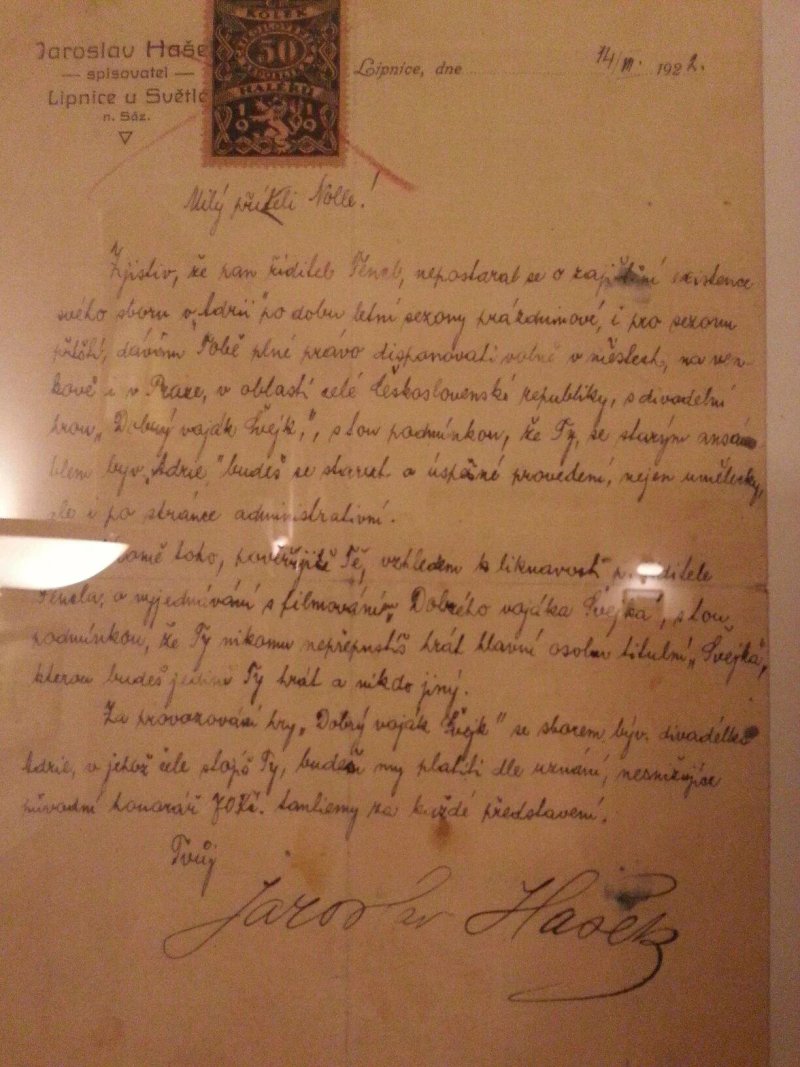 Jaroslav Haše
— spisovatel —
Lipnice u Světlé
n. Sáz.
KOLEK
50
HALÉŘŮ
1919
Lipnice, dne 14/VI. 1922.
Milý příteli Nolle!
Zjistiv, že pan řiditel Fencl, nepostaral se o zajištění existence
svého sboru v „Adrii" po dobu letní sezony prázdninové, i pro sezonu
příští, dávám Tobě plné právo disponovati volně v městech, na ven-
kově i v Praze, v oblasti celé Československé republiky, s divadelní
hrou „Dobrý voják Švejk", s tou podmínkou, že Ty, se starým ansám-
blem býv. „Adrie" budeš se starat o úspěšné provedení, nejen umělecky,
ale i po stránce administrativní.
toho, Tě, vzhledem k liknavosti p. řiditele
Fencla, o vyjednávání s filmování „Dobrého vojáka Švejka", s tou
podmínkou, že Ty nikomu nepřepustíš hrát hlavní osobu titulní „Švejka",
kterou budeš jedině Ty hrát a nikdo jiný.
Za provozování hry „Dobrý voják Švejk" se sborem býv. divadélka
Adrie, v jehož čele stojíš Ty, budeš my platiti dle uznání, nesnižujíce
původní honorář 70 Kč. tantiemy za každé představení.
Tvůj
Jaroslav Hašek